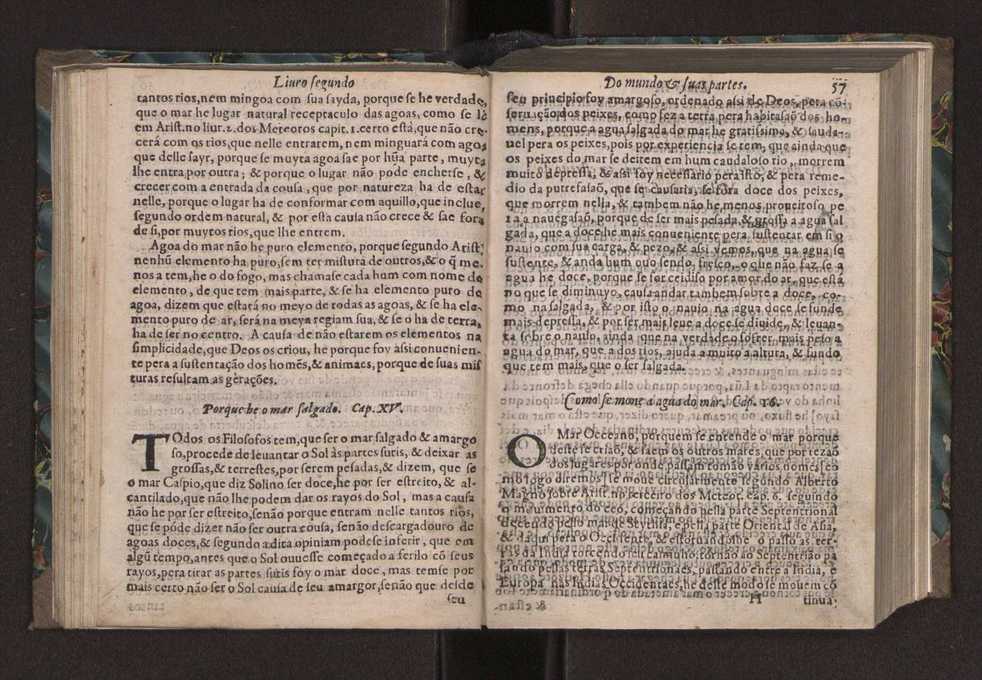 Liuro segundo
tantos rios, nem mingoa com sua sayda, porque se he verdade,
que o mar he lugar natural receptaculo das agoas, como se lè
em Arist. no liur. 2. dos Meteoros capit. 1. certo está, que não cre-
cerá com os rios, que nelle entrarem, nem minguará com agoa
que delle sayr, porque se muyta agoa sae por hũa parte, muyta
lhe entra por outra; & porque o lugar não pode encherse, &
crecer com a entrada da cousa, que por natureza ha de estar
nelle, porque o lugar ha de conformar com aquillo, que inclue,
segundo ordem natural, & por esta causa não crece & sae fora
de si, por muytos rios, que lhe entrem.
Agoa do mar não he puro elemento, porque segundo Arist.
nenhũ elemento ha puro, sem ter mistura de outros, & o q̃ me-
nos a tem, he o do fogo, mas chamase cada hum com nome do
elemento, de que tem mais parte, & se ha elemento puro de
agoa, dizem que estará no meyo de todas as agoas, & se ha ele-
mento puro de ar, será na meya regiam sua, & se o ha de terra,
ha de ser no centro. A causa de não estarem os elementos na
simplicidade, que Deos os criou, he porque foy assi conuenien-
te pera a sustentação dos homẽs, & animaes, porque de suas mis
turas resultam as gèrações.
Porque he o mar salgado. Cap. XV.
TOdos os Filosofos tem, que ser o mar salgado & amargo
so, procede de leuantar o Sol às partes sutis, & deixar as
grossas, & terrestes, por serem pesadas, & dizem, que se
o mar Caspio, que diz Solino ser doce, he por ser estreito, & al-
cantilado, que não lhe podem dar os rayos do Sol, mas a causa
não he por ser estreito, senão porque entram nelle tantos rios,
que se póde dizer não ser outra cousa, senão descargadouro de
agoas doces, & segundo a dita opiniam podese inferir, que em
algũ tempo, antes que o Sol ouuesse começado a ferilo cõ seus
rayos, pera tirar as partes sutis foy o mar doce, mas temse por
mais certo não ser o Sol causa de seu amargor, senão que desde
seu
Do mundo, & suas partes. 57
seu principio foy amargoso, ordenado assi de Deos, pera cõ-
seruação dos peixes, como fez a terra pera habitasaõ dos ho-
mens, porque a agua salgada do mar he gratissima, & sauda-
uel pera os peixes, pois por experiencia se tem, que ainda que
os peixes do mar se deitem em hum caudaloso rio, morrem
muito depressa, & assi foy necessario pera isto, & pera reme-
dio da putrefasaõ, que se causaria, se fora doce dos peixes,
que morrem nella, & tambem não he menos proueitoso pe
ra a nauegasaõ, porque de ser mais pesada, & grossa a agua sal
gada, que a doce, he mais conueniente pera sustentar em si o
nauio com sua carga, & pezo, & assi vemos, que na agua se
sustente, & anda hum ouo sendo fresco, o que não faz se a
agua he doce, porque
no que se diminuyo, causa andar tambem sobre a doce, co-
mo na salgada, & por isto o nauio na agua doce se funde
mais depressa, & por ser mais leue a doce se diuide, & leuan-
ta sobre o nauio, ainda que na verdade o sofrer mais peso a
agua do mar, que a dos rios, ajuda a muito a altura, & fundo
que tem mais, que o ser salgada.
Como se moue a agua do mar. Cap. 16.
O Mar Occeano, porquem se entende o mar porque
deste se criaõ, & saem os outros mares, que por rezaõ
dos lugares por onde passam tomão varios nomes, co
mo logo diremos, se moue circularmente segundo Alberto
Magno sobre Arist. no terceiro dos Meteor. cap. 6. seguindo
o mouimento do ceo, começando pella parte Septentrional
decendo pello mar de Seythia, & pella parte Oriental de Asia,
& daqui pello Occidente, & estoruandolhe o passo as ter-
ras da India, & o direito caminho, tornão ao Septentrião pa
sando pellas terras Septentrionaes, passando entre a India, &
Europa Indias Occidentaes, he deste modo se mouem cõ
H tinua-